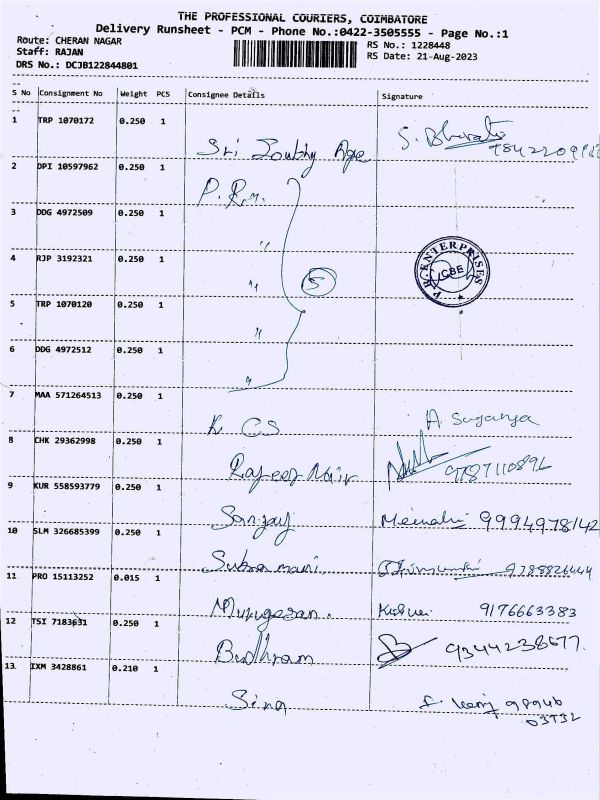 THE PROFESSIONAL COURIERS, COIMBATORE
Delivery Runsheet - PCM - Phone No.:0422-3505555 - Page No.:1
Route: CHERAN NAGAR
Staff: RAJAN
DRS No.: DCJB122844801
RS No.: 1228448
RS Date: 21-Aug-2023
S No Consignment No Weight PCS Consignee Details Signature
1 TRP 1070172 0.250 1
Sri
2 DPI 10597962 0.250 1
P. R. M.
3 DDG 4972509 0.250 1
"
4 RJP 3192321 0.250 1
" 5
P.R. ENTERPRISES
CBE
5 TRP 1070120 0.250 1
"
6 DDG 4972512 0.250 1
"
7 MAA 571264513 0.250 1
K CS A. Suganya
8 CHK 29362998 0.250 1
Rajeev Nair
9 KUR 558593779 0.250 1
Sanjay
10 SLM 326685399 0.250 1
Subramani
11 PRO 15113252 0.015 1
Murugesan. 9176663383
12 TSI 7183631 0.250 1
Budhram 9344238677.
13. IXM 3428861 0.210 1